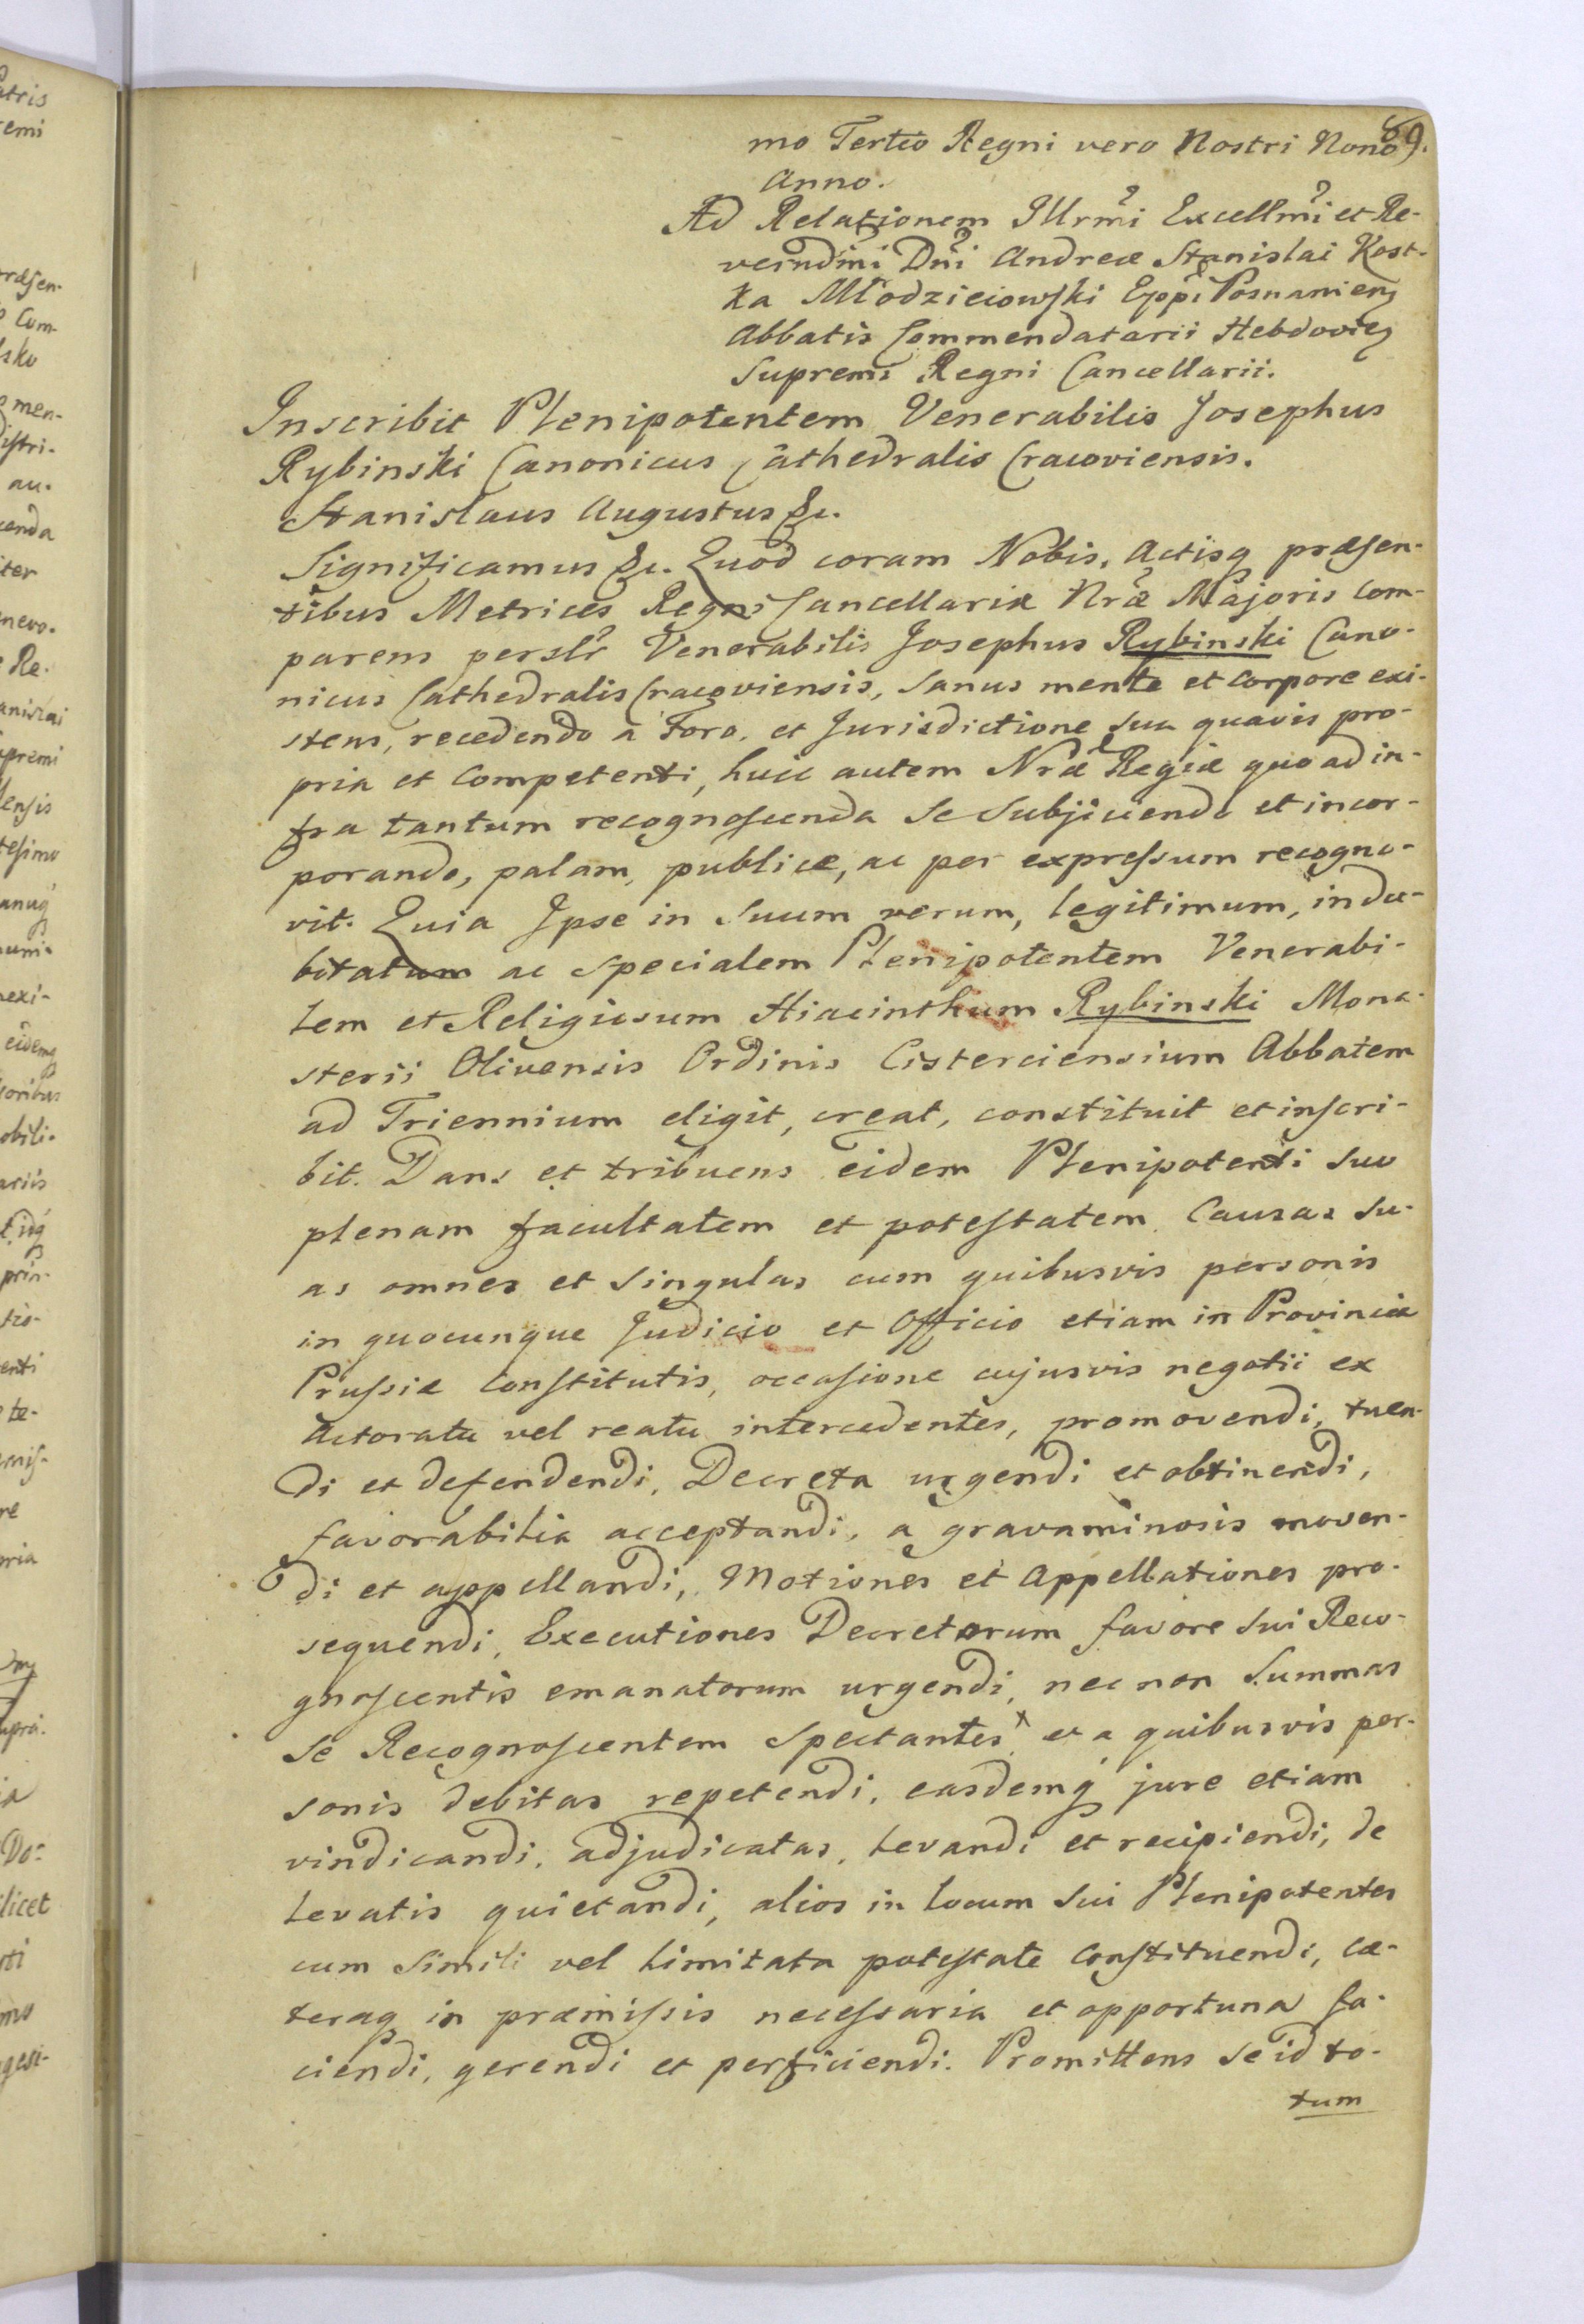 69.
mo Tertio Regni vero Nostri Nono
Anno.
Ad Relationem Illrmi Excellmi et Re-
verndmi Dni Andreæ Stanislai Kost-
ka Młodzieiowski Eppi Posnanien
Abbatis Commendatarii Hebdovien
Supremi Regni Cancellarii.
Inscribit Plenipotentem Venerabilis Josephus
Rybinski Canonicus Cathedralis Cracoviensis.
Stanislaus Augustus &c.
Significamus &c. Quod coram Nobis, Actisq præsen-
tibus Metrices Regni Cancellariæ Nræ Majoris com-
parens perslr Venerabilis Josephus Rybinski Cano-
nicus Cathedralis Cracoviensis, Sanus mente et Corpore exi-
stens, recedendo a Foro, et Jurisdictione sua quavis pro-
pria et Competenti, huic autem Nræ Regiæ quo ad in-
fra tantum recognoscenda Se Subjiciendo et incor-
porando, palam, publice, ac per expressum recogno-
vit. Quia Ipse in Suum verum, legitimum, indu-
bitatum ac specialem Plenipotentem Venerabi-
lem et Religiosum Hiacinthum Rybinski Mona-
sterii Olivensis Ordinis Cisterciensium Abbatem
ad Triennium eligit, creat, constituit et inscri-
bit. Dans et tribuens eidem Plenipotenti suo
plenam facultatem et potestatem Causas su-
as omnes et singulas cum quibusvis personis
in quocunque Judicio et Officio etiam in Provincia
Prussiæ Constitutis, occasione cujusvis negotii ex
Actoratu vel reatu intercedentes, promovendi, tuen-
di et defendendi, Decreta urgendi et obtinendi,
favorabilia acceptandi, a gravaminosis moven-
di et appellandi, Motiones et Appellationes pro-
sequendi, Executiones Decretorum favore Sui Reco-
gnoscentis emanatorum urgendi, nec non Summas
Se Recognoscentem Spectantes et a quibusvis per-
sonis debitas repetendi, easdemq jure etiam
vindicandi, adjudicatas, levandi et recipiendi, de
levatis quietandi, alios in locum Sui Plenipotentes
cum Simili vel limitata potestate Constituendi, cæ-
teraq in præmissis necessaria et opportuna fa-
ciendi, gerendi et perficiendi. Promittens Se id to-
tum